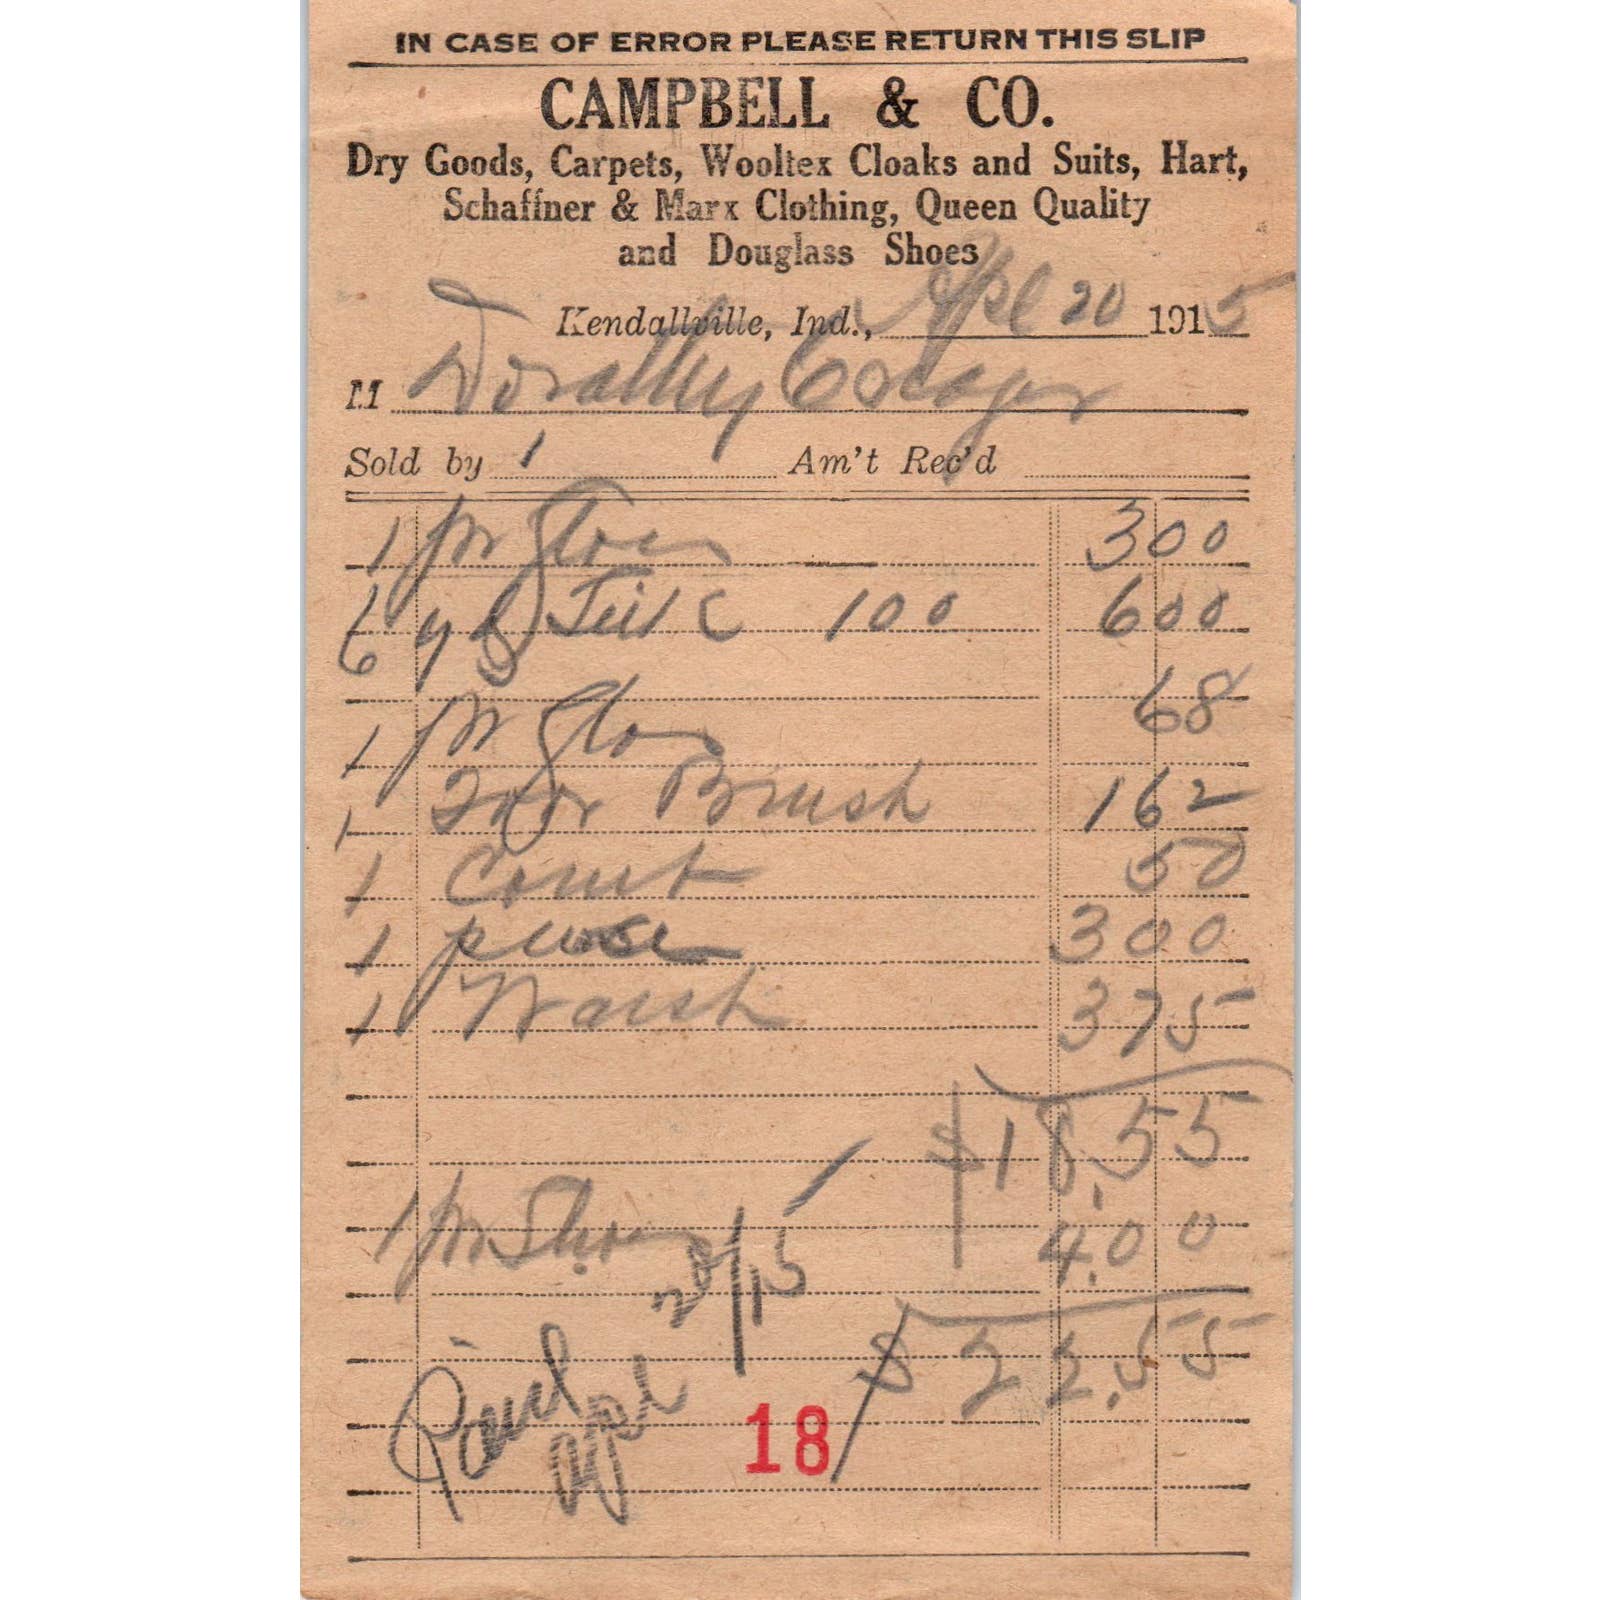 IN CASE OF ERROR PLEASE RETURN THIS SLIP
CAMPBELL & CO.
Dry Goods, Carpets, Wooltex Cloaks and Suits, Hart,
Schaffner & Marx Clothing, Queen Quality
and Douglass Shoes
Kendallville, Ind., Apl 20 1915
M Dorothy
Sold by 1 Am't Rec'd
1 pr 300
6 yds 100 600
1 pr 68
1 Brush 162
1 50
1 purse 300
1 375
$18.55
1 pr Shoes 4.00
$22.55
Paid Apl 28/15
18